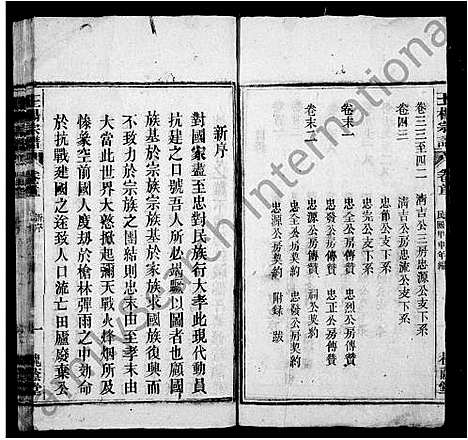 王楊宗譜 卷首
民國甲申年編
卷三三至四二 清吉公三房忠流公支下系
卷四三 清吉公房忠源公支下系
忠節公支下系
忠完公支下系
卷末一 忠源公房傳贊 忠烈公房傳贊
忠流公房傳贊 忠正公房傳贊
忠發公房傳贊 祠公契約
卷末二 忠源公房契約 附錄 跋
忠 公房契約
新序
對國家盡至忠對民族行大孝此現代動員
抗建之口號吾人所必竭驅以圖者也顧國
族基於宗族宗族基於家族求國族復興而
不致力於宗族之團結則忠末由至孝末由
大當此世界大戰掀起彌天戰火烽烟所及
慘象空前國人度刼於槍林彈雨之中効命
於抗戰建國之途致人口流亡田廬廢棄公
王楊宗譜 卷首 新序 一